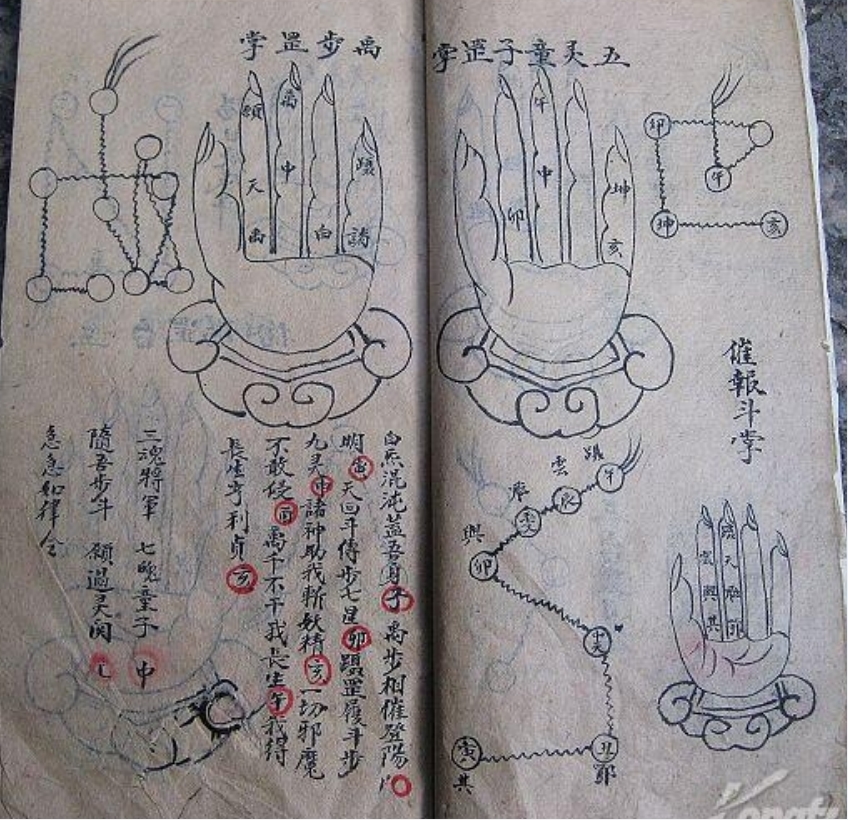 五灵童子罡掌
午
中
卯
坤
亥
卯
午
坤
亥
催報斗掌
午
雲
辰
與
卯
丑
寅
其
天
與
其
禹步罡掌
禹
中
願
天
禹
白
諸
白炁混沌蓋吾身子禹步相催登陽
明寅天回斗傳步七星卯躡罡履斗步
九灵申諸神助我斬妖精亥一切邪魔
不敢侵酉禹千不干我長生午我得
長生亨利貞亥
三魂將軍 七魄童子 中
隨吾步斗 願過灵関
急急如律令